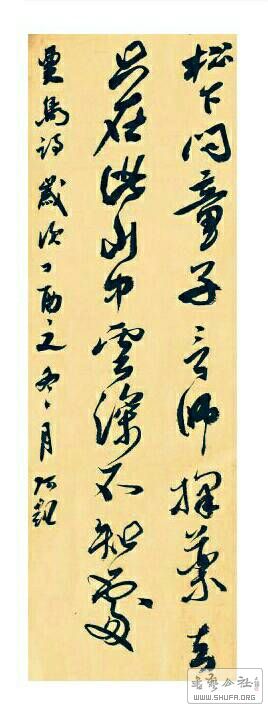 松下問童子言師採藥去
只在此山中雲深不知處
賈島詩歲次丁酉之冬月
书艺公社
WWW.SHUFA.ORG